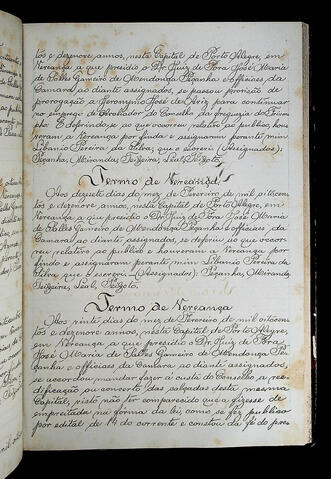 tos e dezenove annos, nesta Capital de Porto Alegre, em
Vereança a que presidio o Dr. Juiz de Fora José Maria
de Salles Gameiro de Mendonça Peçanha e officiaes da
Camara ao diante assignados, se passou provisão de
prorogação a Jeronymo José de Ariz para continuar
no emprego de Arrolador do Conselho da freguezia do Trium
fo. E deferindo-se ao que ocorreu relativo ao publico, hou
veram a Vereança por finda e assignaram perante mim
Libanio Pereira da Silva, que o escrevi (Assignados)
Peçanha, Miranda, Teixeira, Leal, Peixoto.
Termo de Vereança
Aos dezoito dias do mez de Fevereiro de mil oitocen
tos e dezenove annos, nesta Capital de Porto Alegre, em
Vereança a que presidio o Dr. Juiz de Fora José Maria
de Salles Gameiro de Mendonça Peçanha e officiaes da
Camara ao diante assignados, se deferiu ao que ocor
reu relativo ao publico e houveram a Vereança por
finda e assignaram perante mim Libanio Pereira da
Silva que o escrevi (Assignados) Peçanha, Miranda,
Teixeira, Leal, Peixoto.
Termo de Vereança
Aos vinte dias do mez de Fevereiro de mil oitocen
tos e dezenove annos, nesta Capital de Porto Alegre,
em Vereança a que presidio o Dr. Juiz de Fora
José Maria de Salles Gameiro de Mendonça Pe
çanha e officiaes da Camara ao diante assignados,
se accordou mandar fazer á custa do Conselho a re
edificação ou concerto das calçadas desta mesma
Capital, visto não ter comparecido que a fizesse de
empreitada na forma da lei, como se fez publico
por edital de 14 do corrente e constou da fé do pres